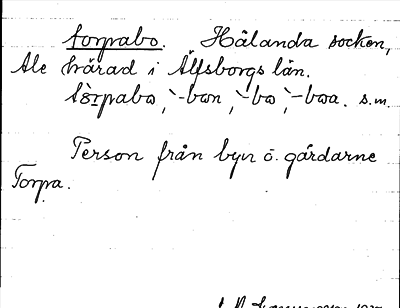 torpabo. Hålanda socken,
Ale härad i Älfsborgs län.
tòrpabo, `-bon, `-bo, `-boa. s.m.
Person från byn o. gårdarne
Torpa.